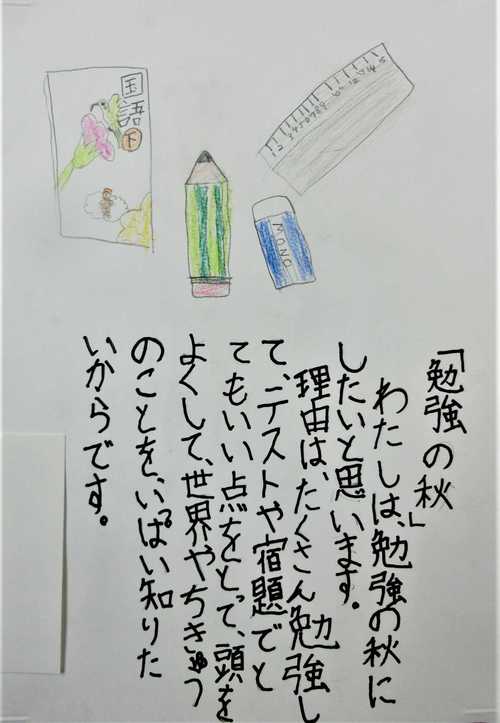 国語
下
MONO
「勉強の秋」
わたしは、勉強の秋に
したいと思います。
理由は、たくさん勉強し
て、テストや宿題でと
てもいい点をとって、頭を
よくして、世界やちきゅう
のことを、いっぱい知りた
いからです。